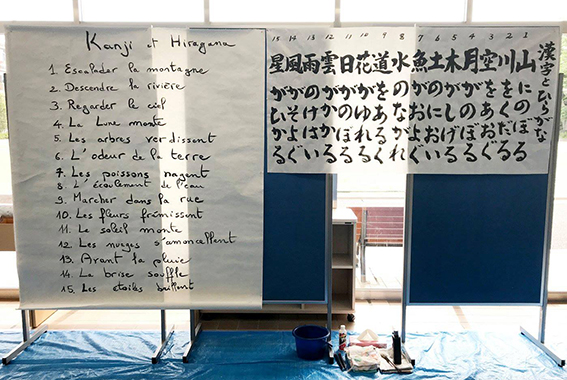 Kanji et Hiragana
1. Escalader la montagne
2. Descendre la rivière
3. Regarder le ciel
4. La Lune monte
5. Les arbres verdissent
6. L'odeur de la terre
7. Les poissons nagent
8. L'écoulement de l'eau
9. Marcher dans la rue
10. Les fleurs frémissent
11. Le soleil monte
12. Les nuages s'amoncellent
13. Avant la pluie
14. La brise souffle
15. Les étoiles brillent
漢字とひらがな
1 山にのぼる
2 川をくだる
3 空をあおぐ
4 月がのぼる
5 木がしげる
6 土のにおい
7 魚がおよぐ
8 水のながれ
9 道をあるく
10 花がゆれる
11 日がのぼる
12 雲が
13 雨のけはい
14 風がそよぐ
15 星がひかる